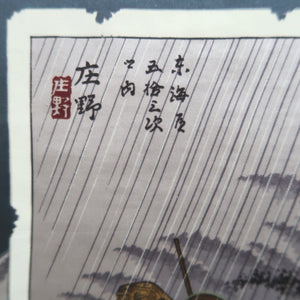 東海道
五拾三次
之内
庄野
庄野